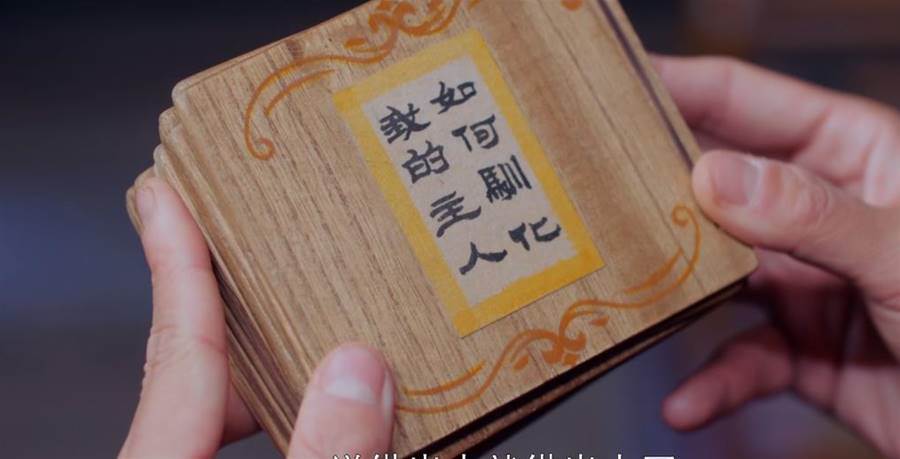 如何馴化
我的主人